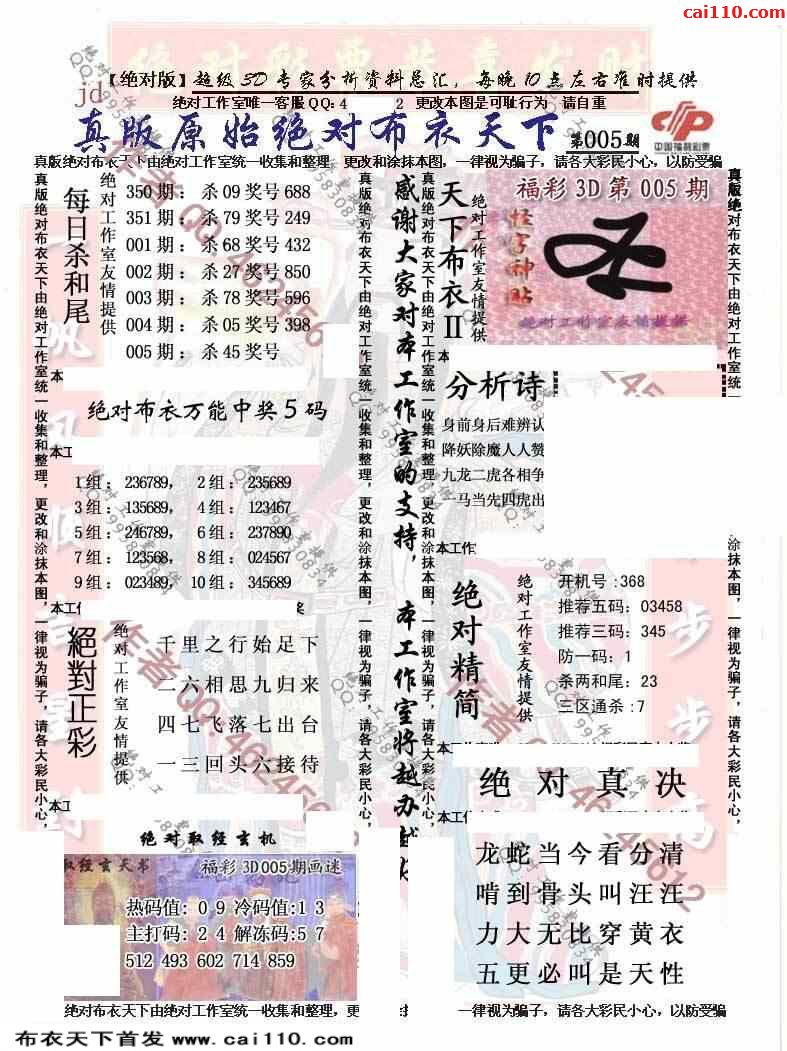 cai110.com
【绝对版】超级3D专家分析资料总汇，每晚10点左右准时提供
jd
绝对工作室唯一客服QQ:4 2 更改本图是可耻行为 请自重
真版原始绝对布衣天下 第005期
中国福利彩票
真版绝对布衣天下由绝对工作室统一收集和整理，更改和涂抹本图，一律视为骗子，请各大彩民小心，以防受骗
真版绝对布衣天下由绝对工作室统一收集和整理，更改和涂抹本图，一律视为骗子，请各大彩民小心，
每日杀和尾
绝对工作室友情提供
350期：杀09奖号688
351期：杀79奖号249
001期：杀68奖号432
002期：杀27奖号850
003期：杀78奖号596
004期：杀05奖号398
005期：杀45奖号
本
绝对布衣万能中奖5码
本工
1组：236789， 2组：235689
3组：135689， 4组：123467
5组：246789， 6组：237890
7组：123568， 8组：024567
9组：023489， 10组：345689
本工作
絕對正彩
绝对工作室友情提供
千里之行始足下
二六相思九归来
四七飞落七出台
一三回头六接待
本工
绝对取经玄机
取经玄天书 福彩3D005期画迷
热码值：09冷码值:13
主打码：24解冻码:57
512 493 602 714 859
真版绝对布衣天下由绝对工作室统一收集和整理，更改和涂抹本图，一律视为骗子，请各大彩民小心，
感谢大家对本工作室的支持，本工作室将越办越好
真版绝对布衣天下由绝对工作室统一收集和整理，更改和涂抹本图，一律视为骗子，请各大彩民小心，
天下布衣II
绝对工作室友情提供
福彩3D第005期
怪字神贴
绝对工作室友情提供
本
分析诗
身前身后难辨认
降妖除魔人人赞
九龙二虎各相争
一马当先四虎出
本工作
绝对精简
绝对工作室友情提供
开机号:368
推荐五码：03458
推荐三码：345
防一码：1
杀两和尾：23
三区通杀:7
本工作
绝对真决
本工作
龙蛇当今看分清
啃到骨头叫汪汪
力大无比穿黄衣
五更必叫是天性
真版绝对布衣天下由绝对工作室统一收集和整理，更改和涂抹本图，一律视为骗子，请各大彩民小心，
绝对布衣天下由绝对工作室统一收集和整理，更 一律视为骗子，请各大彩民小心，以防受骗
布衣天下首发 www.cai110.com